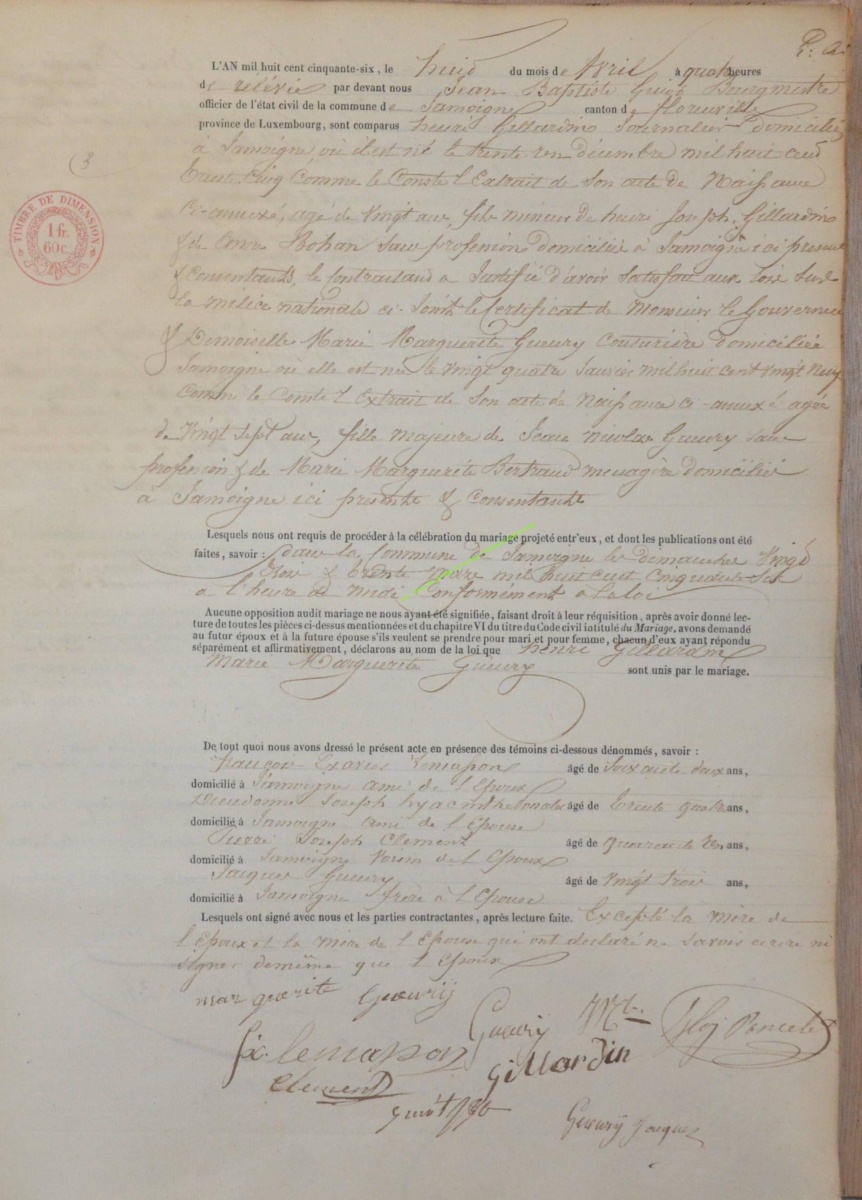 L'AN mil huit cent cinquante-six, le huit du mois de Avril à quatre heures
de relévée par devant nous Jean Baptiste Guiot Bourgmestre
officier de l'état civil de la commune de Jamoigne canton de florenville
province de Luxembourg, sont comparus henri Gillardin Journalier domicilié
à Jamoigne, où il est né le trente un décembre mil huit cent
trente cinq comme le Conste l'Extrait de Son acte de Naissance
Ci-annexé, agé de Vingt ans, fils mineur de henri Joseph Gillardin
& de Rohan Sans profession domiciliée à Jamoigne ici present
& Consentants, le Contractant a Justifié d'avoir Satisfait aux lois sur
la milice nationale ci-Joint le Certificat de Monsieur le Gouverneur
& Demoiselle Marie Marguerite Gueury Couturière domiciliée
Jamoigne où elle est née le Vingt quatre Janvier mil huit cent Vingt Neuf
Comme le Conste l'extrait de Son acte de Naissance ci-annexé agée
de Vingt Sept ans, fille majeure de Jean Nicolas Gueury sans
profession & de Marie Marguerite Bertrand menagère domiciliés
à Jamoigne ici presente & Consentante
Lesquels nous ont requis de procéder à la célébration du mariage projeté entr'eux, et dont les publications ont été
faites, savoir : dans la Commune de Jamoigne les dimanches Vingt
trois & trente mars mil huit cent Cinquante Six
a l'heure de midi Conformement a la loi
Aucune opposition audit mariage ne nous ayant été signifiée, faisant droit à leur réquisition, après avoir donné lec-
ture de toutes les pièces ci-dessus mentionnées et du chapitre VI du titre du Code civil intitulé du Mariage, avons demandé
au futur époux et à la future épouse s'ils veulent se prendre pour mari et pour femme, chacun d'eux ayant répondu
séparément et affirmativement, déclarons au nom de la loi que henri Gillardin
Marie Marguerite Gueury sont unis par le mariage.
TIMBRE DE DIMENSION
1 fr.
60c.
De tout quoi nous avons dressé le présent acte en présence des témoins ci-dessous dénommés, savoir :
françois Lemapon âgé de Soixante deux ans,
domicilié à Jamoigne ami de l'Epoux
Dieudonné Joseph hyacinthe âgé de trente quatre ans,
domicilié à Jamoigne ami de l'Epouse
Pierre Joseph Clement âgé de quarante un ans,
domicilié à Jamoigne Voisin de l'Epoux
Jacques Gueury âgé de Vingt trois ans,
domicilié à Jamoigne frère à l'Epouse
Lesquels ont signé avec nous et les parties contractantes, après lecture faite. Excepté la mère de
l'Epoux et la mère de l'Epouse qui ont declaré ne savoir ecrire ni
signer demême que l'Epoux
marguerite Gueurÿ
Gueurÿ
fx. lemapon Gillardin
Clement
Gueurÿ Jacques